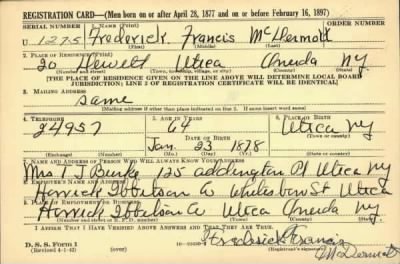 REGISTRATION CARD—(Men born on or after April 28, 1877 and on or before February 16, 1897)
SERIAL NUMBER 1. NAME (Print)
U 1275 Frederick Francis McDermott
(First) (Middle) (Last)
2. PLACE OF RESIDENCE (Print)
20 Hewett Utica Oneida NY
(Number and street) (Town, township, village, or city) (County) (State)
[THE PLACE OF RESIDENCE GIVEN ON THE LINE ABOVE WILL DETERMINE LOCAL BOARD
JURISDICTION; LINE 2 OF REGISTRATION CERTIFICATE WILL BE IDENTICAL]
3. MAILING ADDRESS
same
[Mailing address if other than place indicated on line 2. If same insert word same]
4. TELEPHONE 5. AGE IN YEARS 6. PLACE OF BIRTH
24957 64 Utica NY
DATE OF BIRTH (Town or county)
Jan. 23 1878
(Exchange) (Number) (Mo.) (Day) (Yr.) (State or country)
7. NAME AND ADDRESS OF PERSON WHO WILL ALWAYS KNOW YOUR ADDRESS
Mrs T J Burke 125 Addington Pl Utica NY
8. EMPLOYER'S NAME AND ADDRESS
Horrick Ibbitson Co Whitesboro St Utica
9. PLACE OF EMPLOYMENT OR BUSINESS
Horrick Ibbitson Co Utica Oneida NY
I AFFIRM THAT I HAVE VERIFIED ABOVE ANSWERS AND THAT THEY ARE TRUE.
D. S. S. Form 1
(Revised 4-1-42)
Frederick Francis
McDermott